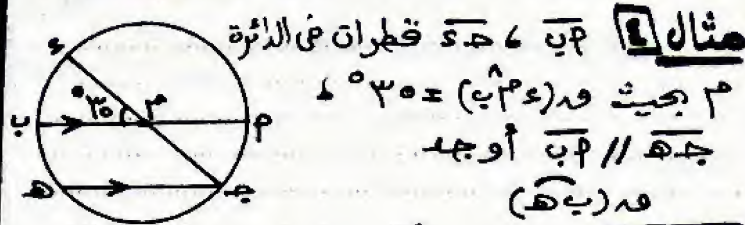 مثال ٤ أب ، جـد قطران فى الدائرة
م بحيث ق(د م ب) = ٣٥° ،
جـهـ // أب أوجد
ق(ب هـ)
د
ب ٣٥° م أ
هـ جـ